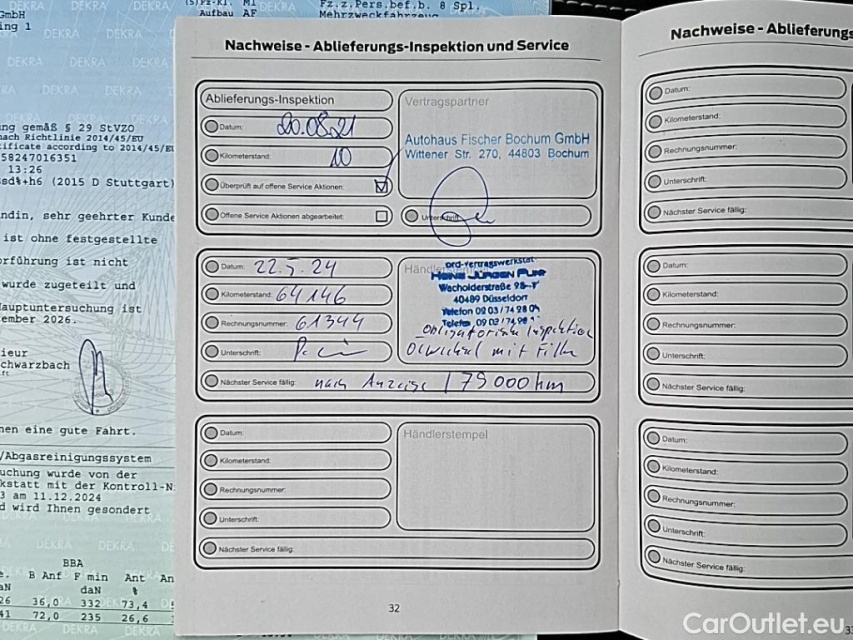 GmbH
ing 1
ung gemäß § 29 StVZO
nach Richtlinie 2014/45/EU
tificate according to 2014/45/E
58247016351
13:26
(2015 D Stuttgart)
ndin, sehr geehrter Kunde
ist ohne festgestellte
orführung ist nicht
wurde zugeteilt und
auptuntersuchung ist
ember 2026.
ieur
chwarzbach
nen eine gute Fahrt.
/Abgasreinigungssystem
uchung wurde von der
kstatt mit der Kontroll-N
3 am 11.12.2024
d wird Ihnen gesondert
DEKRA DEKRA DEKRA
BBA
e. B Anf F min Ant An
aN daN %
26 36,0 332 73,4
41 72,0 235 26,6
Fz.z.Pers.bef.b. 8 Spl.
Aufbau AF Mehrzweckfahrzeug
Nachweise - Ablieferungs-Inspektion und Service
Ablieferungs-Inspektion
Datum: 20.08.21
Kilometerstand: 10
Überprüft auf offene Service Aktionen:
Offene Service Aktionen abgearbeitet:
Vertragspartner
Autohaus Fischer Bochum GmbH
Wittener Str. 270, 44803 Bochum
Unterschrift:
Datum: 22.5.24
Kilometerstand: 64146
Rechnungsnummer: 61344
Unterschrift:
Nächster Service fällig: nach Anzeige / 79000 km
ord-Vertragswerkstat
Wacholderstraße
40489 Düsseldorf
Telefon 02 03 / 74 28 04
Obligatorische Inspektion
Ölwechsel mit Filter
Datum:
Kilometerstand:
Rechnungsnummer:
Unterschrift:
Nächster Service fällig:
Händlerstempel
32
Nachweise - Ablieferungs
Datum:
Kilometerstand:
Rechnungsnummer:
Unterschrift:
Nächster Service fällig:
Datum:
Kilometerstand:
Rechnungsnummer:
Unterschrift:
Nächster Service fällig:
Datum:
Kilometerstand:
Rechnungsnummer:
Unterschrift:
Nächster Service fällig:
CarOutlet.eu